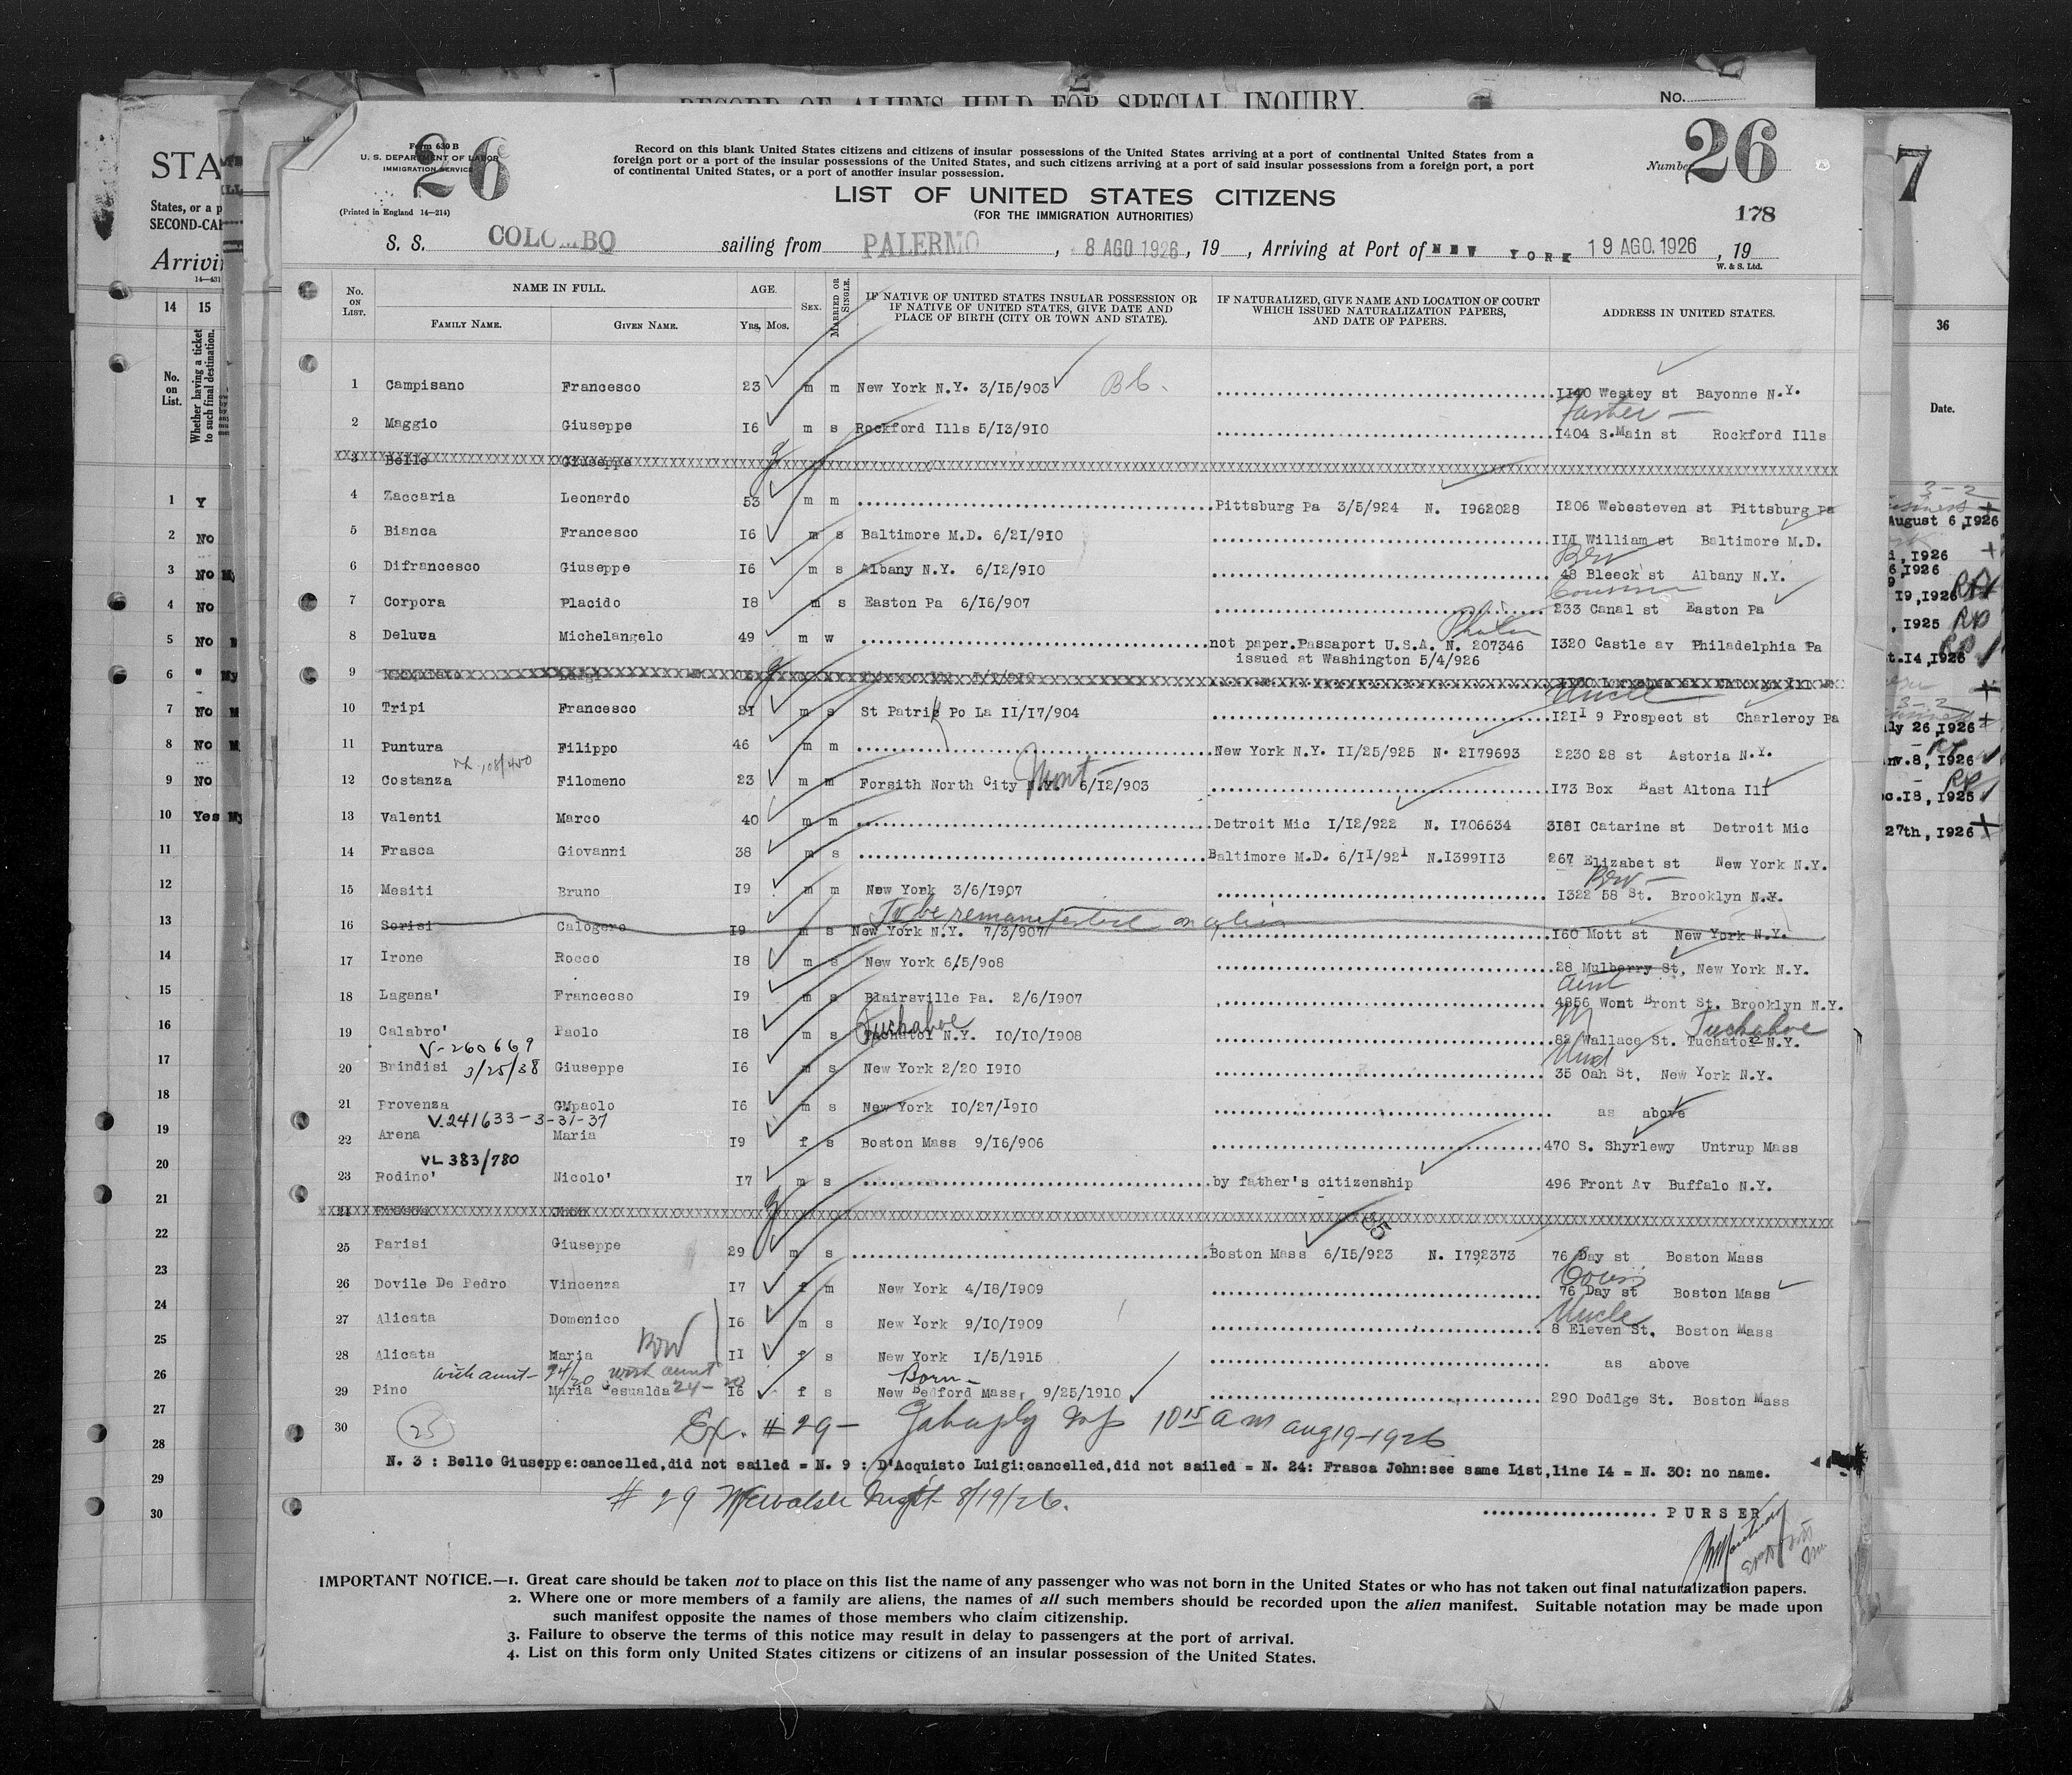 RECORD OF ALIENS HELD FOR SPECIAL INQUIRY.
No.
STA
States, or a p
SECOND-CA
Arrivi
14 15
No. on List.
Whether having a ticket to such final destination.
1 Y
2 No
3 No My
4 No
5 No
6 " My
7 No M
8 No M
9 No
10 Yes My
11
12
13
14
15
16
17
18
19
20
21
22
23
24
25
26
27
28
29
30
Form 630 B
U. S. DEPARTMENT OF LABOR
IMMIGRATION SERVICE
26
(Printed in England 14—214)
Record on this blank United States citizens and citizens of insular possessions of the United States arriving at a port of continental United States from a
foreign port or a port of the insular possessions of the United States, and such citizens arriving at a port of said insular possessions from a foreign port, a port
of continental United States, or a port of another insular possession.
LIST OF UNITED STATES CITIZENS
(FOR THE IMMIGRATION AUTHORITIES)
Number 26
178
S. S. COLOMBO sailing from PALERMO, 8 AGO 1926, 19 , Arriving at Port of NEW YORK 19 AGO. 1926, 19
W. & S. Ltd.
No. on List.
NAME IN FULL.
Family Name. Given Name.
AGE.
Yrs. Mos.
Sex.
Married or Single.
IF NATIVE OF UNITED STATES INSULAR POSSESSION OR
IF NATIVE OF UNITED STATES, GIVE DATE AND
PLACE OF BIRTH (CITY OR TOWN AND STATE).
IF NATURALIZED, GIVE NAME AND LOCATION OF COURT
WHICH ISSUED NATURALIZATION PAPERS,
AND DATE OF PAPERS.
ADDRESS IN UNITED STATES.
1 Campisano Francesco 23 m m New York N.Y. 3/I5/903 BC. II40 Westey st Bayonne N.Y.
Father —
2 Maggio Giuseppe I6 m s Rockford Ills 5/I3/910 I404 S.Main st Rockford Ills
3 Bello Giuseppe
4 Zaccaria Leonardo 53 m m Pittsburg Pa 3/5/924 N. I962028 I206 Webesteven st Pittsburg Pa
5 Bianca Francesco I6 m s Baltimore M.D. 6/2I/9I0 III William st Baltimore M.D.
Bro
6 Difrancesco Giuseppe I6 m s Albany N.Y. 6/I2/9I0 48 Bleeck st Albany N.Y.
Cousin
7 Corpora Placido I8 m s Easton Pa 6/I6/907 233 Canal st Easton Pa
8 Deluca Michelangelo 49 m w not paper.Passaport U.S.A. N. 207346 I320 Castle av Philadelphia Pa
issued at Washington 5/4/926
9
Uncle
10 Tripi Francesco 2I m s St Patric Po La II/I7/904 I2II 9 Prospect st Charleroy Pa
11 Puntura Filippo 46 m m New York N.Y. II/25/925 N. 2I79693 2230 28 st Astoria N.Y.
12 Costanza Filomeno 23 m m Forsith North City Mont 6/I2/903 I73 Box East Altona Ill
13 Valenti Marco 40 m m Detroit Mic I/I2/922 N. I706634 3I8I Catarine st Detroit Mic
14 Frasca Giovanni 38 m s Baltimore M.D. 6/II/92I N.I399II3 267 Elizabet st New York N.Y.
Bro —
15 Mesiti Bruno I9 m m New York 3/6/I907 I322 58 St. Brooklyn N.Y.
To be remanifested on alien
16 Sorisi Calogero I9 m s New York N.Y. 7/3/907 I60 Mott st New York N.Y.
17 Irone Rocco I8 m s New York 6/5/908 28 Mulberry St, New York N.Y.
Aunt
18 Lagana' Francecso I9 m s Blairsville Pa. 2/6/I907 4856 Wont Bront St. Brooklyn N.Y.
Tuckahoe Tuckahoe
19 Calabro' Paolo I8 m s Tuchatol N.Y. I0/I0/I908 82 Wallace St. Tuchatol N.Y.
V-260669
3/25/38
20 Brindisi Giuseppe I6 m s New York 2/20 I9I0 35 Oah St. New York N.Y.
21 Provenza GMpaolo I6 m s New York I0/27/I9I0 as above
V.241633-3-31-37
22 Arena Maria I9 f s Boston Mass 9/I6/906 470 S. Shyrlewy Untrup Mass
VL 383/780
23 Rodino' Nicolo' I7 m s by father's citizenship 496 Front Av Buffalo N.Y.
24 Frasca John
25 Parisi Giuseppe 29 m s Boston Mass 6/I5/923 N. I792373 76 Day st Boston Mass
Cousin
26 Dovile De Pedro Vincenza I7 f m New York 4/I8/I909 76 Day st Boston Mass
Uncle
27 Alicata Domenico I6 m s New York 9/I0/I909 8 Eleven St. Boston Mass
28 Alicata Maria II f s New York I/5/I9I5 as above
with aunt — 24/20 with aunt 24-20 Born —
29 Pino Maria Gesualda I6 f s New Bedford Mass, 9/25/I9I0 290 Dodlge St. Boston Mass
30 25 Ex. # 29 — 10 15 am aug 19-1926
N. 3 : Bello Giuseppe:cancelled,did not sailed = N. 9 : D'Acquisto Luigi:cancelled,did not sailed = N. 24: Frasca John:see same List,line I4 = N. 30: no name.
# 29 8/19/26.
PURSER
IMPORTANT NOTICE.—1. Great care should be taken not to place on this list the name of any passenger who was not born in the United States or who has not taken out final naturalization papers.
2. Where one or more members of a family are aliens, the names of all such members should be recorded upon the alien manifest. Suitable notation may be made upon
such manifest opposite the names of those members who claim citizenship.
3. Failure to observe the terms of this notice may result in delay to passengers at the port of arrival.
4. List on this form only United States citizens or citizens of an insular possession of the United States.
7
36
Date.
3-2
August 6,1926
, 1926
6,1926
19,1926
, 1925
t.14,1926
3-2
ly 26,1926
nv.8, 1926
c.18, 1925
27th, 1926